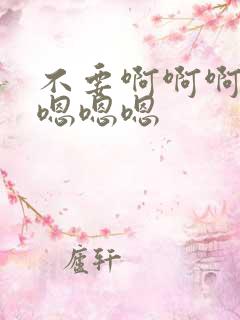 不要啊啊啊
嗯嗯嗯
廬轩